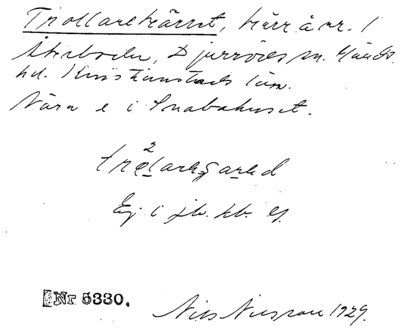 Trollarekärret, kärr å nr. 1
Skebode, Djurröds sn. Gärds
hd. Kristianstads län.
Nära e i Snabahuset.
2
Ej i jb. kb. el.
Nr 5330.
Nils Nilsson 1929.